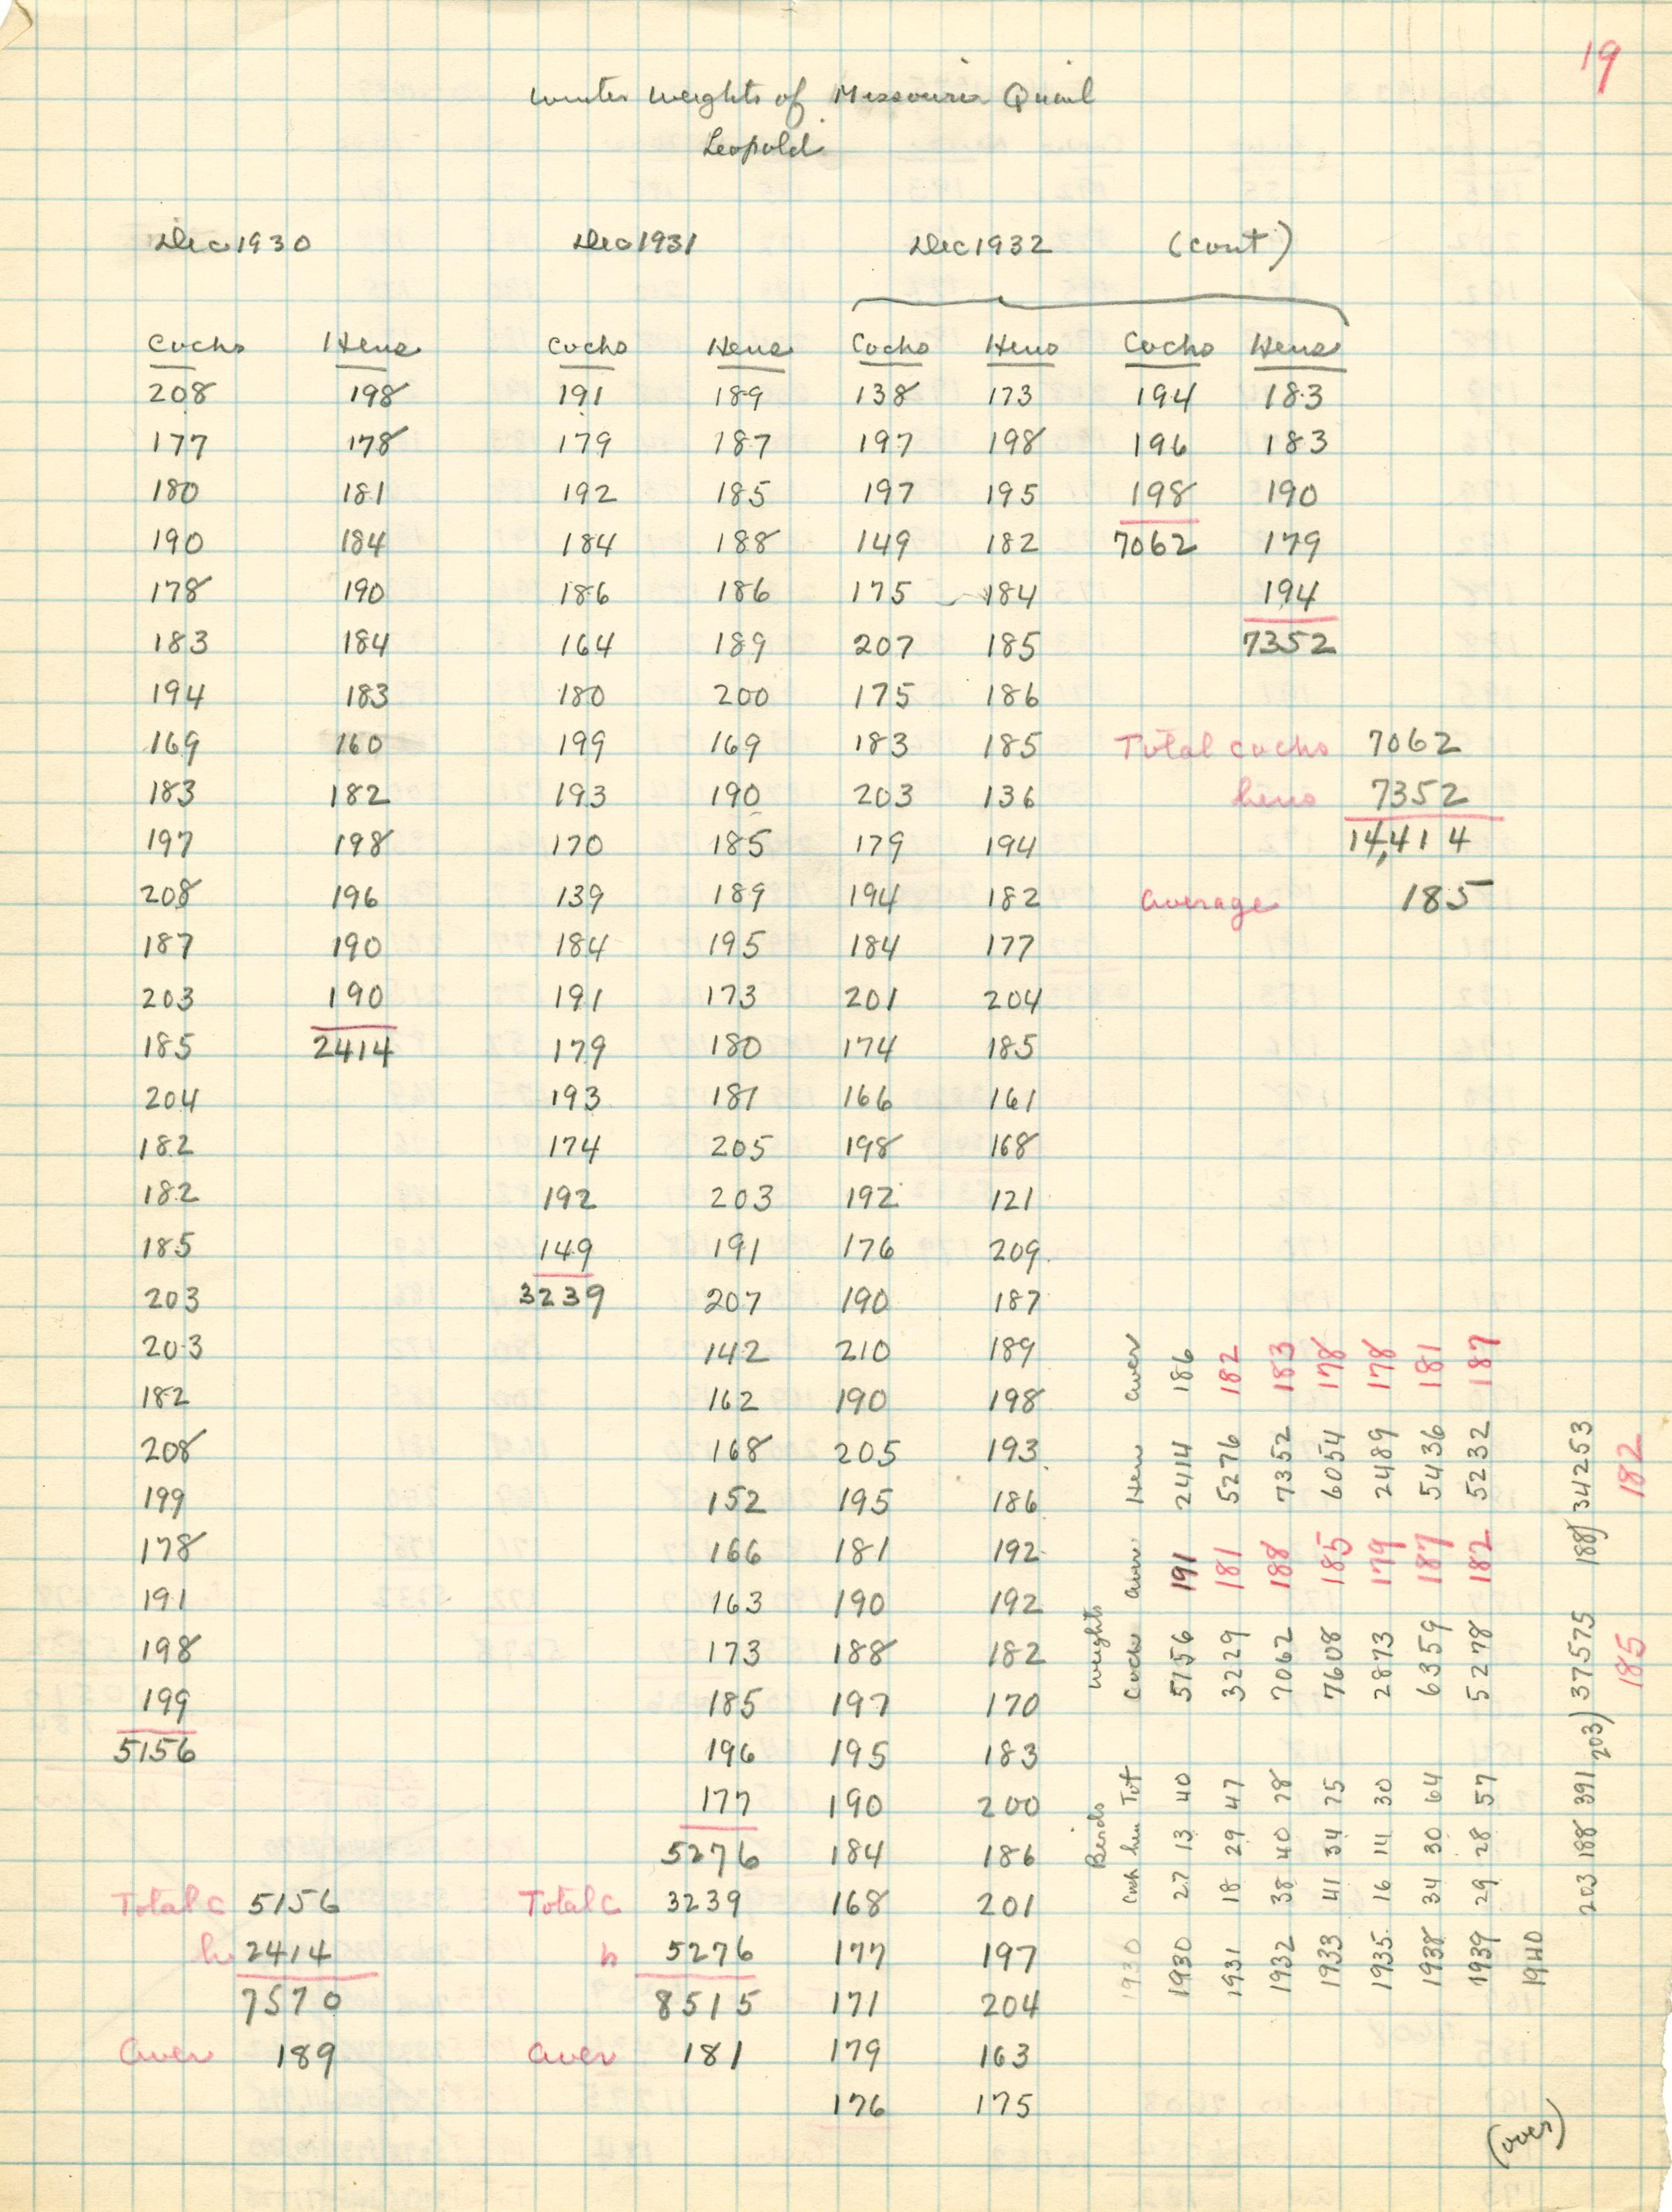 19
Winter Weights of Missouri Quail
Leopold
Dec 1930 Dec 1931 Dec 1932 (cont)
Cocks Hens Cocks Hens Cocks Hens Cocks Hens
208 198 191 189 138 173 194 183
177 178 179 187 197 198 196 183
180 181 192 185 197 195 198 190
190 184 184 188 149 182 7062 179
178 190 186 186 175 184 194
183 184 164 189 207 185 7352
194 183 180 200 175 186
169 160 199 169 183 185 Total cocks 7062
183 182 193 190 203 136 hens 7352
197 198 170 185 179 194 14,414
208 196 139 189 194 182 average 185
187 190 184 195 184 177
203 190 191 173 201 204
185 2414 179 180 174 185
204 193 181 166 161
182 174 205 198 168
182 192 203 192 121
185 149 191 176 209
203 3239 207 190 187
203 142 210 189
182 162 190 198
208 168 205 193
199 152 195 186
178 166 181 192
191 163 190 192
198 173 188 182
199 185 197 170
5156 196 195 183
177 190 200
5276 184 186
Total c 5156 Total c 3239 168 201
h 2414 h 5276 177 197
7570 8515 171 204
aver 189 aver 181 179 163
176 175
Birds Weights
1930 Cock hen Tot Cocks aver Hen aver
1930 27 13 40 5156 191 2414 186
1931 18 29 47 3229 181 5276 182
1932 38 40 78 7062 188 7352 183
1933 41 34 75 7608 185 6054 178
1935 16 14 30 2873 179 2489 178
1938 34 30 64 6359 187 5436 181
1939 29 28 57 5278 182 5232 187
1940
203 188 391 203) 37575 188) 34253
185 182
(over)